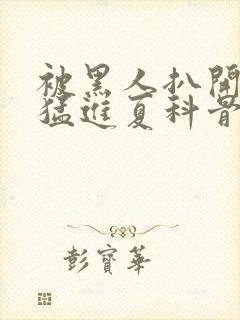 被黑人扒開
猛進夏科骨
彭寶華